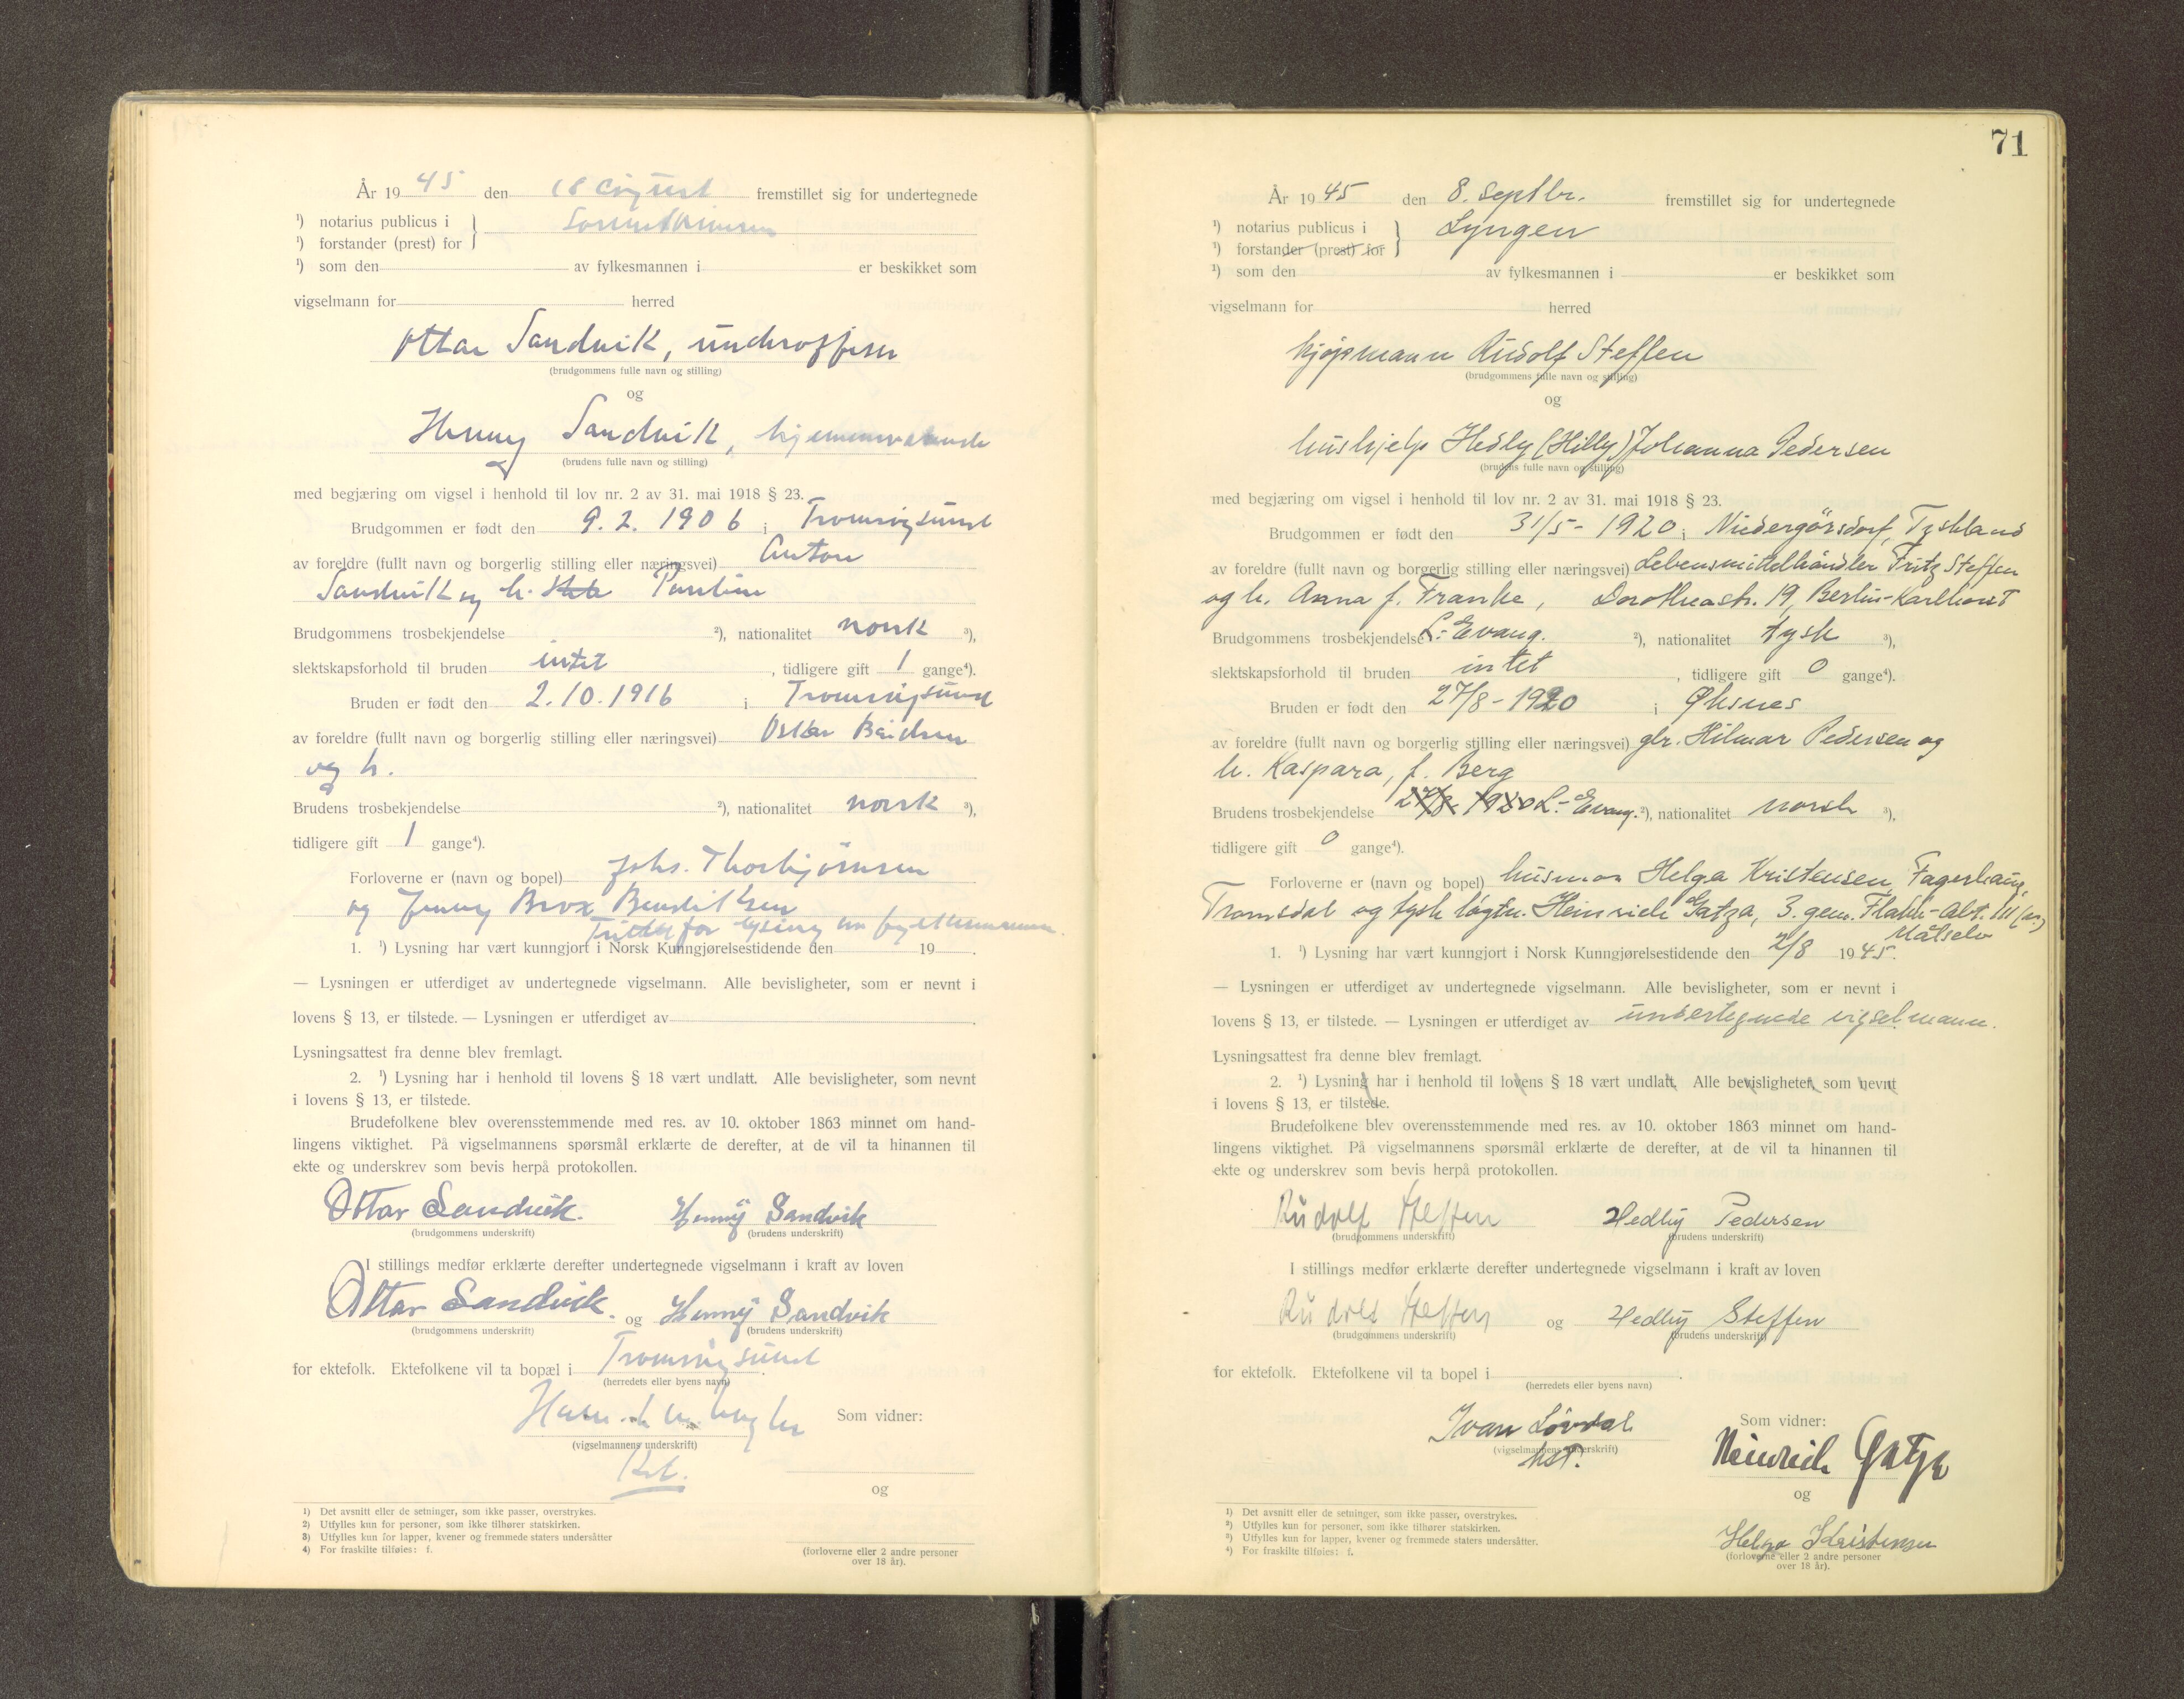 År 1945 den 18 august fremstillet sig for undertegnede
¹) notarius publicus i
¹) forstander (prest) for
¹) som den av fylkesmannen i er beskikket som
vigselmann for herred
Ottar Sandvik, underoffiser
(brudgommens fulle navn og stilling)
og
Henny Sandvik, hjemmeværende
(brudens fulle navn og stilling)
med begjæring om vigsel i henhold til lov nr. 2 av 31. mai 1918 § 23.
Brudgommen er født den 9.2.1906 i Tromsøysund
av foreldre (fullt navn og borgerlig stilling eller næringsvei) Anton
Sandvik og h. Pauline
Brudgommens trosbekjendelse ²), nationalitet norsk ³),
slektskapsforhold til bruden intet, tidligere gift 1 gange⁴).
Bruden er født den 2.10.1916 i Tromsøysund
av foreldre (fullt navn og borgerlig stilling eller næringsvei) Oskar
og h.
Brudens trosbekjendelse ²), nationalitet norsk ³),
tidligere gift 1 gange⁴).
Forloverne er (navn og bopel) Johs. Thorbjørnsen
og Jenny Brox Bendiksen
for lysing
1. ¹) Lysning har vært kunngjort i Norsk Kunngjørelsestidende den 19 .
— Lysningen er utferdiget av undertegnede vigselmann. Alle bevisligheter, som er nevnt i
lovens § 13, er tilstede. — Lysningen er utferdiget av .
Lysningsattest fra denne blev fremlagt.
2. ¹) Lysning har i henhold til lovens § 18 vært undlatt. Alle bevisligheter, som nevnt
i lovens § 13, er tilstede.
Brudefolkene blev overensstemmende med res. av 10. oktober 1863 minnet om hand-
lingens viktighet. På vigselmannens spørsmål erklærte de derefter, at de vil ta hinannen til
ekte og underskrev som bevis herpå protokollen.
Ottar Sandvik. Henny Sandvik
(brudgommens underskrift) (brudens underskrift)
I stillings medfør erklærte derefter undertegnede vigselmann i kraft av loven
Ottar Sandvik. og Henny Sandvik
(brudgommens underskrift) (brudens underskrift)
for ektefolk. Ektefolkene vil ta bopæl i Tromsøysund.
(herredets eller byens navn)
Som vidner:
(vigselmannens underskrift)
og
1) Det avsnitt eller de setninger, som ikke passer, overstrykes.
2) Utfylles kun for personer, som ikke tilhører statskirken.
3) Utfylles kun for lapper, kvener og fremmede staters undersåtter
4) For fraskilte tilføies: f.
(forloverne eller 2 andre personer
over 18 år).
71
År 1945 den 8. septbr. fremstillet sig for undertegnede
¹) notarius publicus i Lyngen
¹) forstander (prest) for
¹) som den av fylkesmannen i er beskikket som
vigselmann for herred
kjøpmann Rudolf Steffen
(brudgommens fulle navn og stilling)
og
hushjelp Hedly (Hilly) Johanna Pedersen
(brudens fulle navn og stilling)
med begjæring om vigsel i henhold til lov nr. 2 av 31. mai 1918 § 23.
Brudgommen er født den 31/5 - 1920 i Niedergörsdorf, Tyskland
av foreldre (fullt navn og borgerlig stilling eller næringsvei) Lebensmittelhändler Fritz Steffen
og h. Anna f. Franke, Dorotheastr. 19, Berlin-Karlhorst
Brudgommens trosbekjendelse L.-Evang. ²), nationalitet tysk ³),
slektskapsforhold til bruden intet, tidligere gift 0 gange⁴).
Bruden er født den 27/8 - 1920 i Øksnes
av foreldre (fullt navn og borgerlig stilling eller næringsvei) gbr. Hilmar Pedersen og
h. Kaspara, f. Berg
Brudens trosbekjendelse 27/8 1920 L.-Evang. ²), nationalitet norsk ³),
tidligere gift 0 gange⁴).
Forloverne er (navn og bopel) husmor Helga Kristensen, Fagerhaug,
Tromsdal og tysk løgtn. Heinrich Gatza, 3. gem. Flakk-Abt. III (m.)
Målselv
1. ¹) Lysning har vært kunngjort i Norsk Kunngjørelsestidende den 2/8 1945.
— Lysningen er utferdiget av undertegnede vigselmann. Alle bevisligheter, som er nevnt i
lovens § 13, er tilstede. — Lysningen er utferdiget av undertegnede vigselmann.
Lysningsattest fra denne blev fremlagt.
2. ¹) Lysning har i henhold til lovens § 18 vært undlatt. Alle bevisligheter, som nevnt
i lovens § 13, er tilstede.
Brudefolkene blev overensstemmende med res. av 10. oktober 1863 minnet om hand-
lingens viktighet. På vigselmannens spørsmål erklærte de derefter, at de vil ta hinannen til
ekte og underskrev som bevis herpå protokollen.
Rudolf Steffen Hedly Pedersen
(brudgommens underskrift) (brudens underskrift)
I stillings medfør erklærte derefter undertegnede vigselmann i kraft av loven
Rudolf Steffen og Hedly Steffen
(brudgommens underskrift) (brudens underskrift)
for ektefolk. Ektefolkene vil ta bopel i .
(herredets eller byens navn)
Ivar Løvdal Som vidner:
(vigselmannens underskrift)
hst.
Heinrich Gatza
og
Helga Kristensen
(forloverne eller 2 andre personer
over 18 år).
¹) Det avsnitt eller de setninger, som ikke passer, overstrykes.
²) Utfylles kun for personer, som ikke tilhører statskirken.
³) Utfylles kun for lapper, kvener og fremmede staters undersåtter.
⁴) For fraskilte tilføies: f.